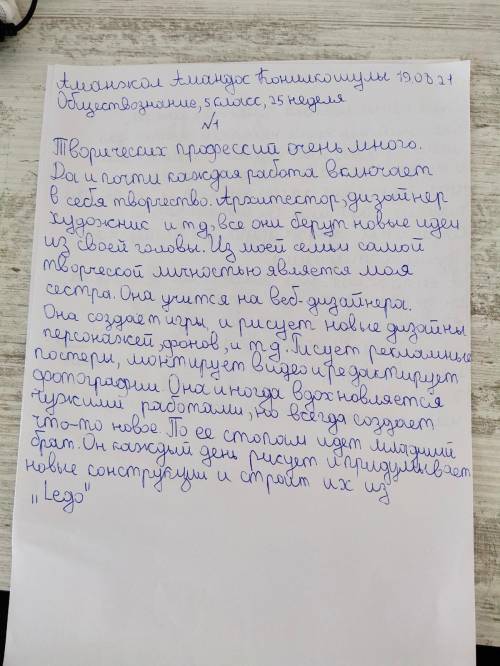 Аманжол Амандос Конилкошулы 19.03.21
Обществознание, 5 класс, 25 неделя
№1
Творических профессий очень много.
Да и почти каждая работа включает
в себя творчество. Архитектор, дизайнер
художник и т д, все они берут новые идеи
из своей головы. Из моей семьи самой
творческой личностью является моя
сестра. Она учится на веб-дизайнера.
Она создает игры, и рисует новые дизайны
персонажей, фонов, и т. д. Рисует рекламные
постеры, монтирует видео и редактирует
фотографии. Она иногда вдохновляется
чужими работами, но всегда создает
что-то новое. По ее стопам идет младший
брат. Он каждый день рисует и придумывает
новые конструкции и строит их из
„Lego"